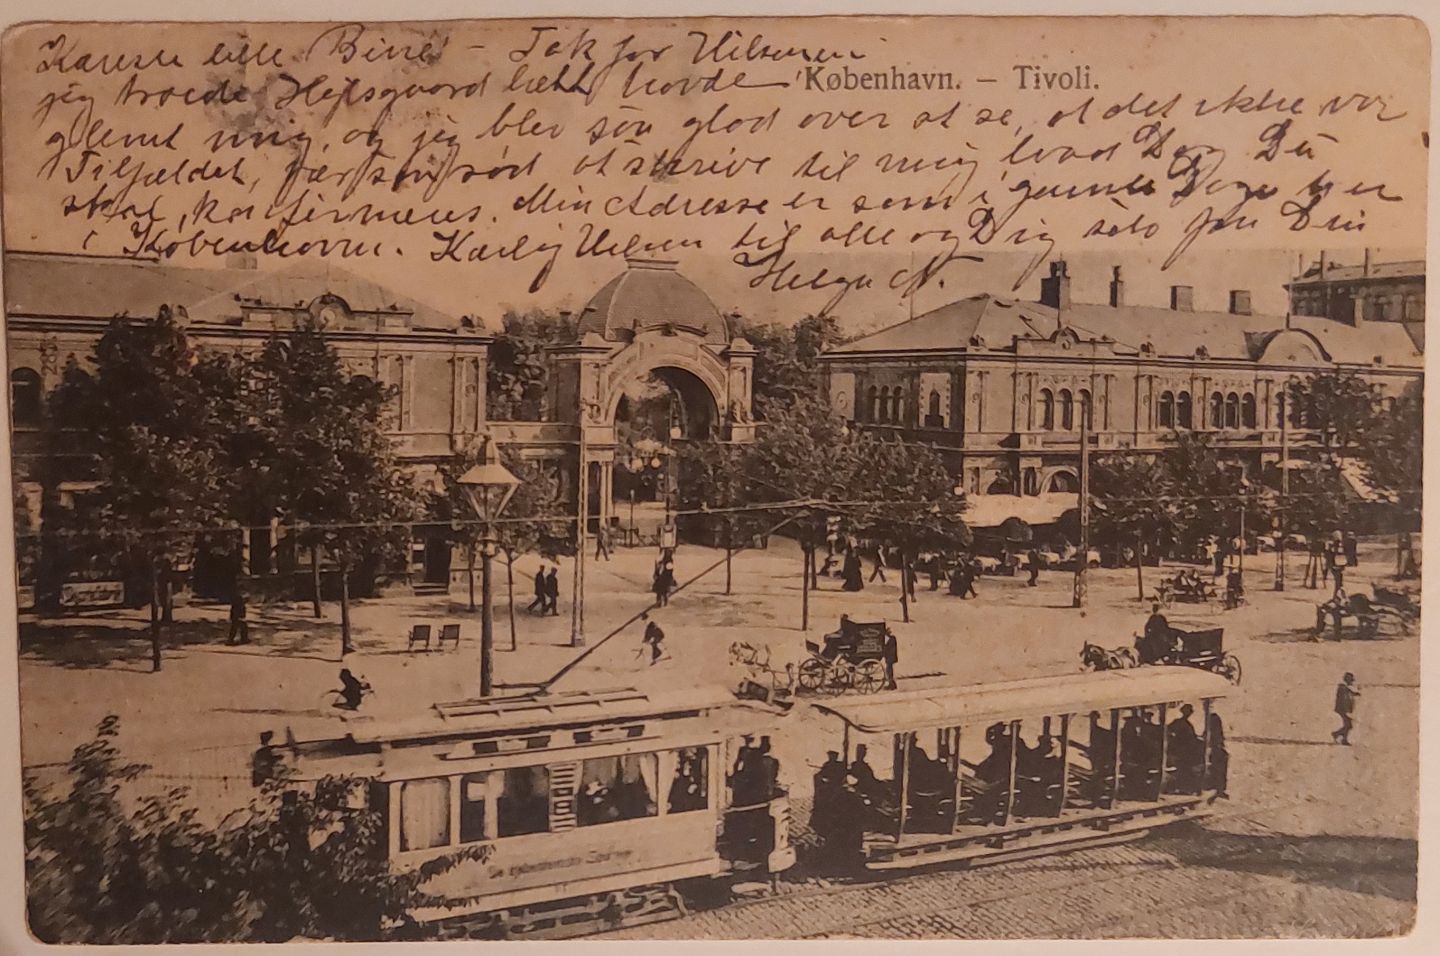 Kæreste lille Birre! – Tak for Hilsenen
København. – Tivoli.
jeg troede Hejlsgaard helt havde
glemt mig, og jeg blev saa glad over at se, at det ikke var
Tilfældet, vær saa sød at skrive til mig hvad Dag Du
skal konfirmeres. Min Adresse er som i gamle Dage her
i København. Kærlig Hilsen til alle og Dig selv fra Din
Helga N.
De Kjøbenhavnske